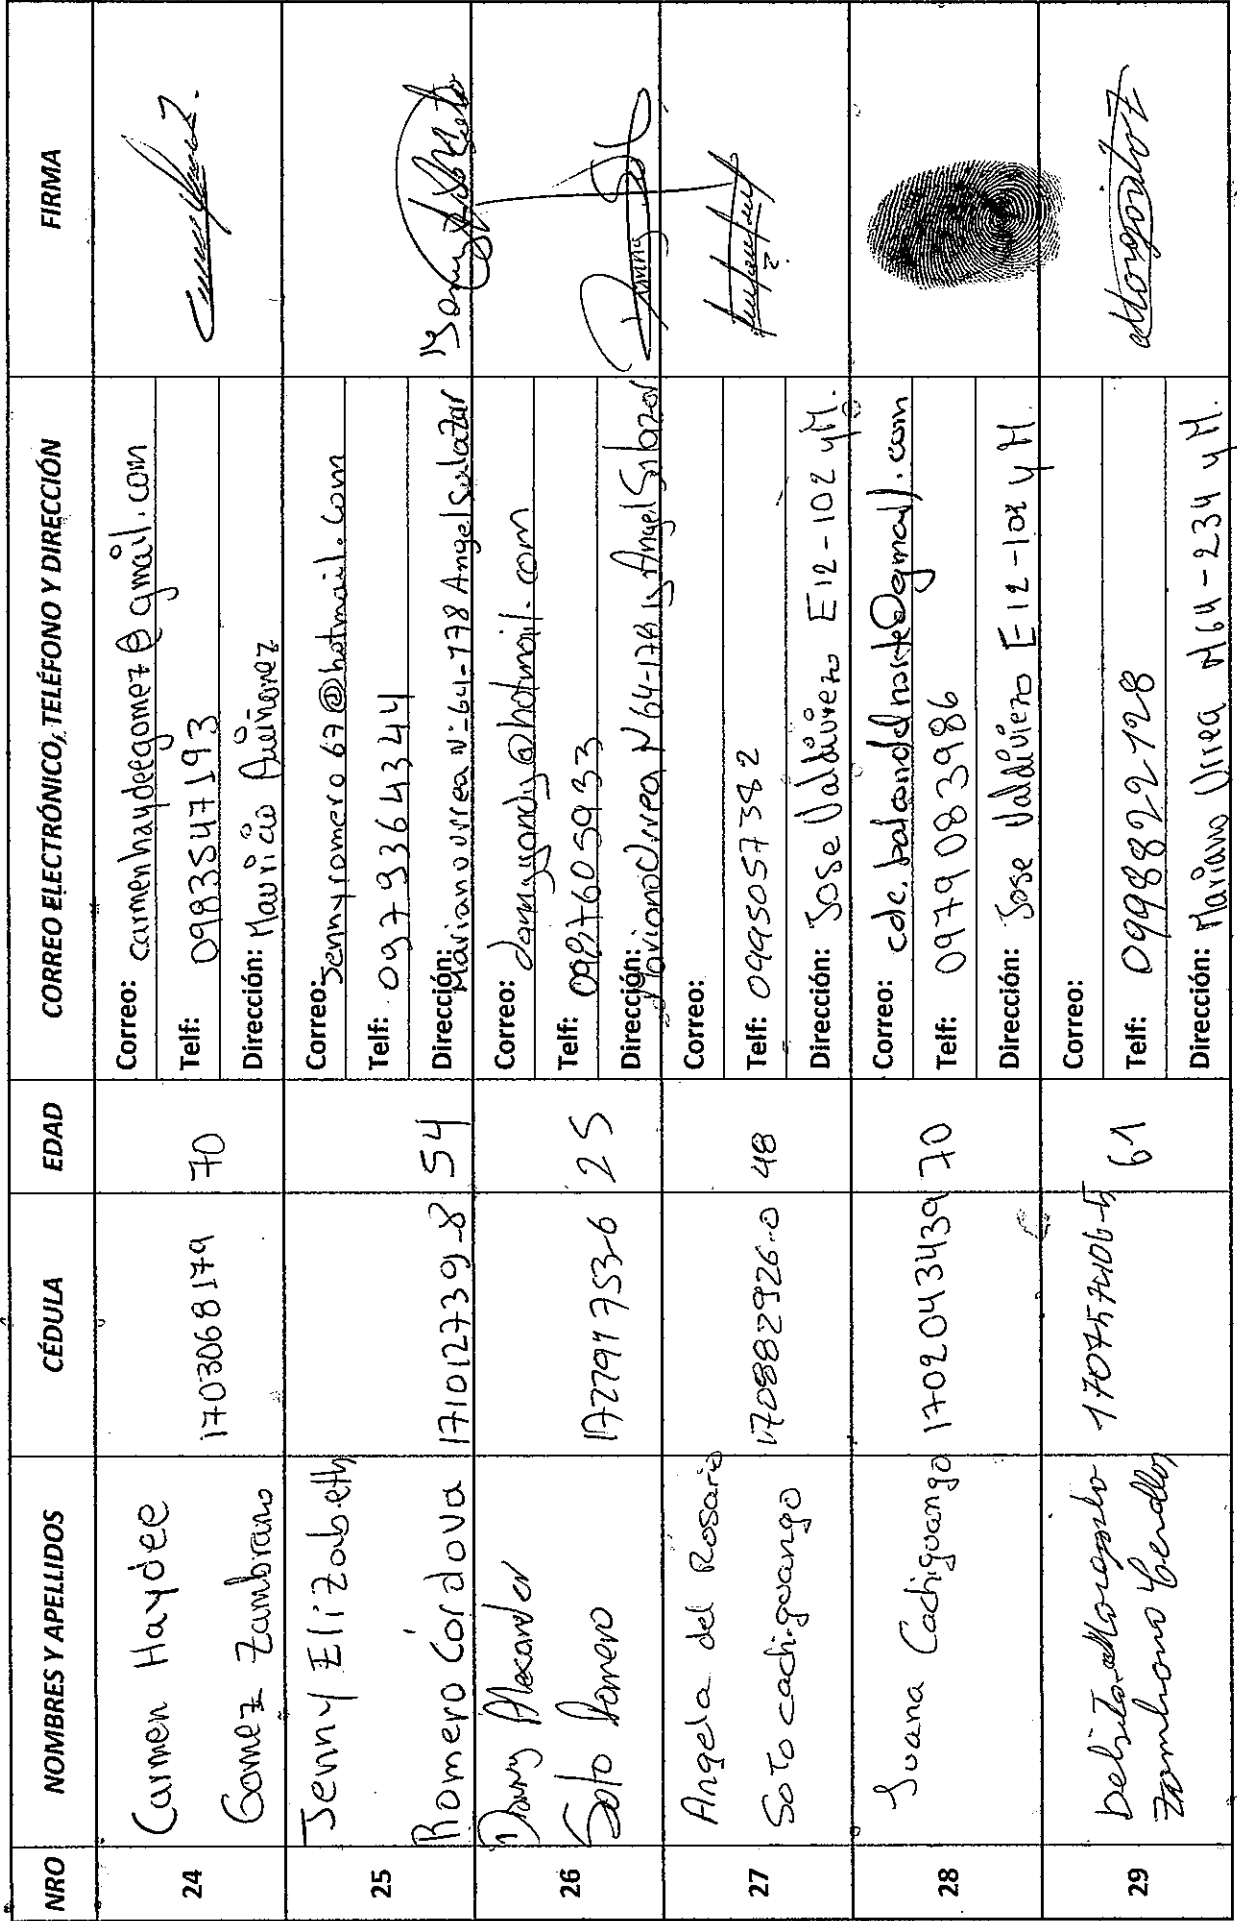 NRO NOMBRES Y APELLIDOS CÉDULA EDAD CORREO ELECTRÓNICO, TELÉFONO Y DIRECCIÓN FIRMA
24
Carmen Haydee
Gomez Zambrano
1703068179
70
Correo: carmenhaydeegomez@gmail.com
Telf: 0983547193
Dirección: Mauricio
25
Jenny Elizabeth
Romero Córdova
171012739-8
54
Correo: Jennyromero67@hotmail.com
Telf: 0979364344
Dirección: Mariano urrea N-64-178 Angel Salazar
26
Danny Alexander
Soto Romero
172791753-6
25
Correo: @hotmail.com
Telf:
Dirección: N64-178 Angel Salazar
27
Angela del Rosario
Soto cachiguango
170882926-0
48
Correo:
Telf: 0995057382
Dirección: Jose Valdiviezo E12-102 y M.
28
Juana Cachiguango
1702043439
70
Correo:
Telf: 0979083986
Dirección: Jose Valdiviezo E12-102 y M.
29
Zambrano
61
Correo:
Telf: 0998822728
Dirección: Mariano Urrea N64-234 y M.